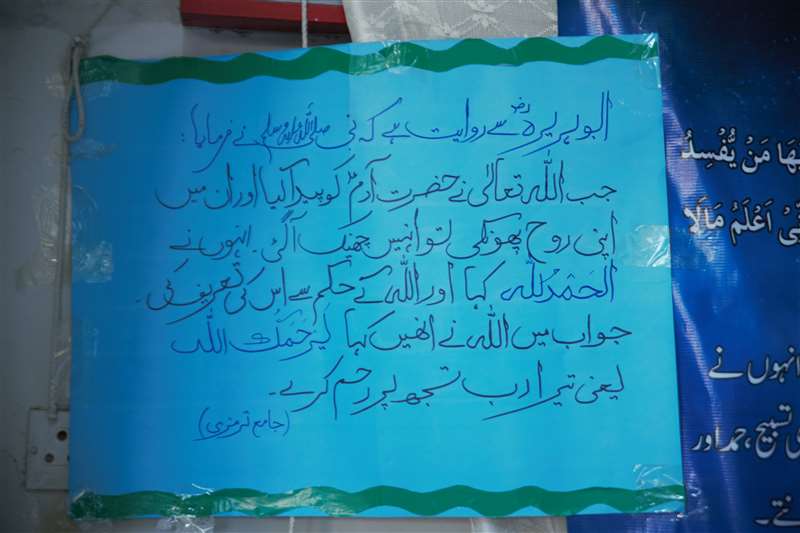 ابوہریرہؓ سے روایت ہے کہ نبی صلی اللہ علیہ وسلم نے فرمایا:
جب اللہ تعالٰی نے حضرت آدمؑ کو پیدا کیا اور ان میں
اپنی روح پھونکی تو انہیں چھینک آگئی۔ انہوں نے
الحَمْدُ للّٰہ کہا اور اللہ کے حکم سے اس کی تعریف کی۔
جواب میں اللہ نے انھیں کہا یَرْحَمُکَ اللہ
یعنی تیرا رب تجھ پر رحم کرے۔
(جامع ترمذی)
مَنْ يُّفْسِدُ
اَعْلَمُ مَالَا
انہوں نے
تسبیح، حمد اور